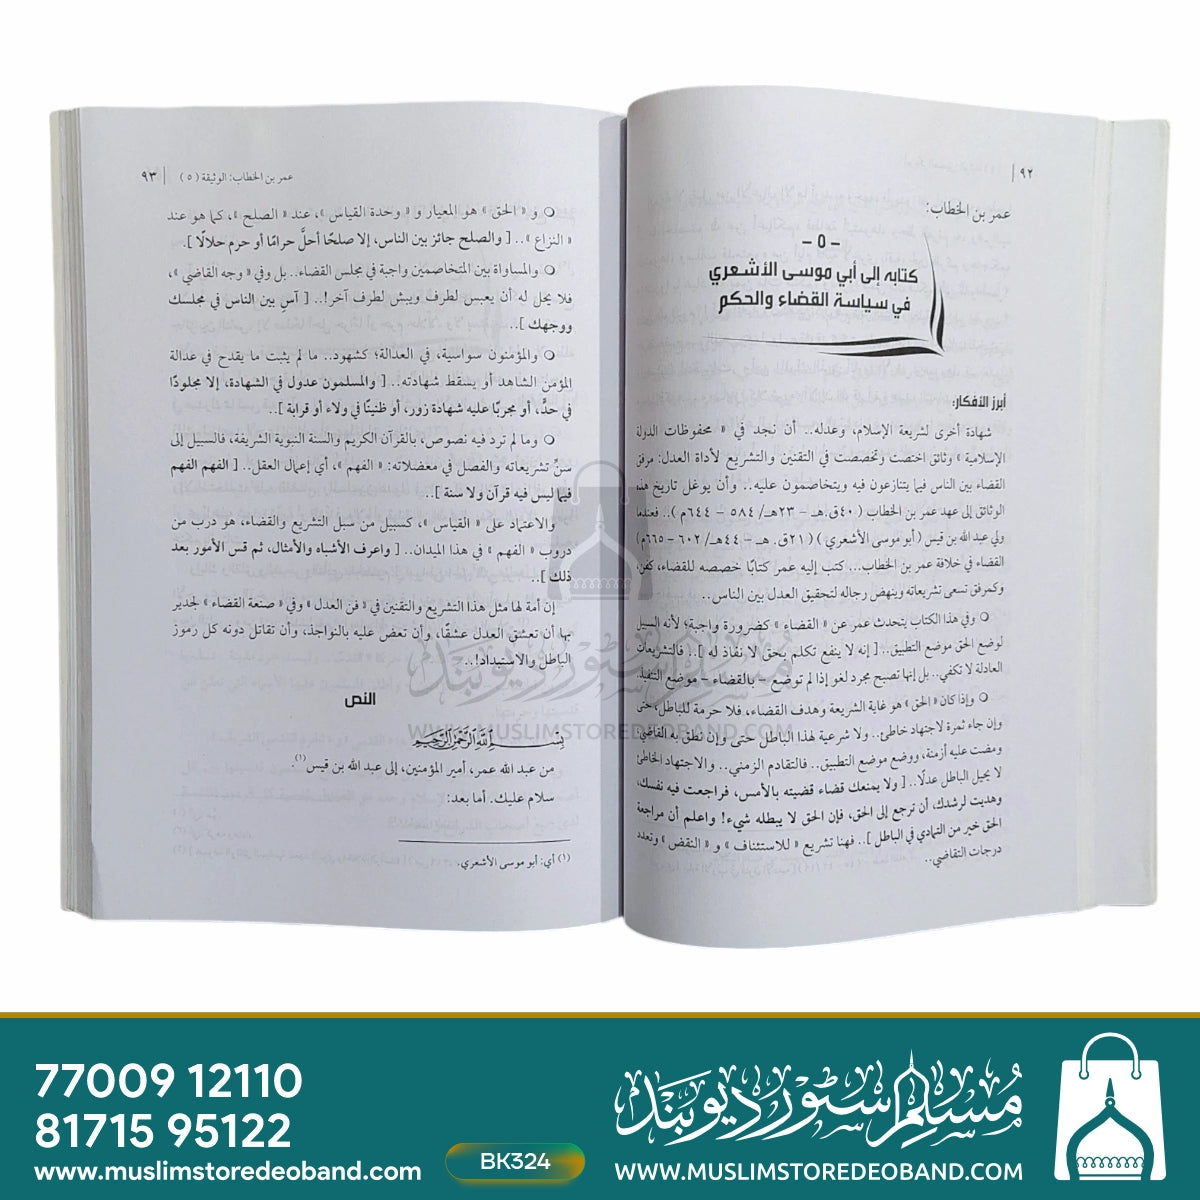 ٩٢
عمر بن الخطاب:
– ٥ –
كتابه إلى أبي موسى الأشعري
في سياسة القضاء والحكم
أبرز الأفكار:
شهادة أخرى لشريعة الإسلام، وعدله.. أن نجد في « محفوظات الدولة
الإسلامية » وثائق اختصت وتخصصت في التقنين والتشريع لأداة العدل: مرفق
القضاء بين الناس فيما يتنازعون فيه ويتخاصمون عليه.. وأن يوغل تاريخ هذه
الوثائق إلى عهد عمر بن الخطاب ( ٤٠ق.هـ – ٢٣هـ/ ٥٨٤ – ٦٤٤م ).. فعندما
ولي عبد الله بن قيس ( أبو موسى الأشعري ) ( ٢١ق. هـ – ٤٤هـ/ ٦٠٢ – ٦٦٥م )
القضاء في خلافة عمر بن الخطاب... كتب إليه عمر كتابًا خصصه للقضاء، كفن،
وكمرفق تسعى تشريعاته وينهض رجاله لتحقيق العدل بين الناس..
○ وفي هذا الكتاب يتحدث عمر عن « القضاء » كضرورة واجبة؛ لأنه السبيل
لوضع الحق موضع التطبيق.. [ إنه لا ينفع تكلم بحق لا نفاذ له ].. فالتشريعات
العادلة لا تكفي.. بل إنها تصبح مجرد لغو إذا لم توضع – بالقضاء – موضع التنفيذ.
○ وإذا كان « الحق » هو غاية الشريعة وهدف القضاء، فلا حرمة للباطل، حتى
وإن جاء ثمرة لاجتهاد خاطئ.. ولا شرعية لهذا الباطل حتى وإن نطق به القاضي،
ومضت عليه أزمنة، ووضع موضع التطبيق.. فالتقادم الزمني.. والاجتهاد الخاطئ
لا يحيل الباطل عدلًا.. [ ولا يمنعك قضاء قضيته بالأمس، فراجعت فيه نفسك،
وهديت لرشدك، أن ترجع إلى الحق، فإن الحق لا يبطله شيء! واعلم أن مراجعة
الحق خير من التمادي في الباطل ].. فهنا تشريع « للاستئناف » و « النقض » وتعدد
درجات التقاضي..
عمر بن الخطاب: الوثيقة ( ٥ ) ٩٣
○ و « الحق » هو المعيار و « وحدة القياس »، عند « الصلح »، كما هو عند
« النزاع ».. [ والصلح جائز بين الناس، إلا صلحًا أحلَّ حرامًا أو حرم حلالًا ].
○ والمساواة بين المتخاصمين واجبة في مجلس القضاء.. بل وفي « وجه القاضي »،
فلا يحل له أن يعبس لطرف ويبش لطرف آخر!.. [ آسِ بين الناس في مجلسك
ووجهك ]..
○ والمؤمنون سواسية، في العدالة؛ كشهود.. ما لم يثبت ما يقدح في عدالة
المؤمن الشاهد أو يسقط شهادته.. [ والمسلمون عدول في الشهادة، إلا مجلودًا
في حدٍّ، أو مجربًا عليه شهادة زور، أو ظنينًا في ولاء أو قرابة ]..
○ وما لم ترد فيه نصوص، بالقرآن الكريم والسنة النبوية الشريفة، فالسبيل إلى
سنِّ تشريعاته والفصل في معضلاته: « الفهم »، أي إعمال العقل.. [ الفهم الفهم
فيما ليس فيه قرآن ولا سنة ]..
والاعتماد على « القياس »، كسبيل من سبل التشريع والقضاء، هو درب من
دروب « الفهم » في هذا الميدان.. [ واعرف الأشباه والأمثال، ثم قس الأمور بعد
ذلك ]..
إن أمة لها مثل هذا التشريع والتقنين في « فن العدل » وفي « صنعة القضاء » لجدير
بها أن تعشق العدل عشقًا، وأن تعض عليه بالنواجذ، وأن تقاتل دونه كل رموز
الباطل والاستبداد!..
النص
بِسْمِ اللَّهِ الرَّحْمَنِ الرَّحِيمِ
من عبد الله عمر، أمير المؤمنين، إلى عبد الله بن قيس(١).
سلام عليك. أما بعد:
(١) أي: أبو موسى الأشعري.
مسلم سٹور دیوبند
WWW.MUSLIMSTOREDEOBAND.COM
77009 12110
81715 95122
www.muslimstoredeoband.com
BK324
مسلم سٹور دیوبند
WWW.MUSLIMSTOREDEOBAND.COM